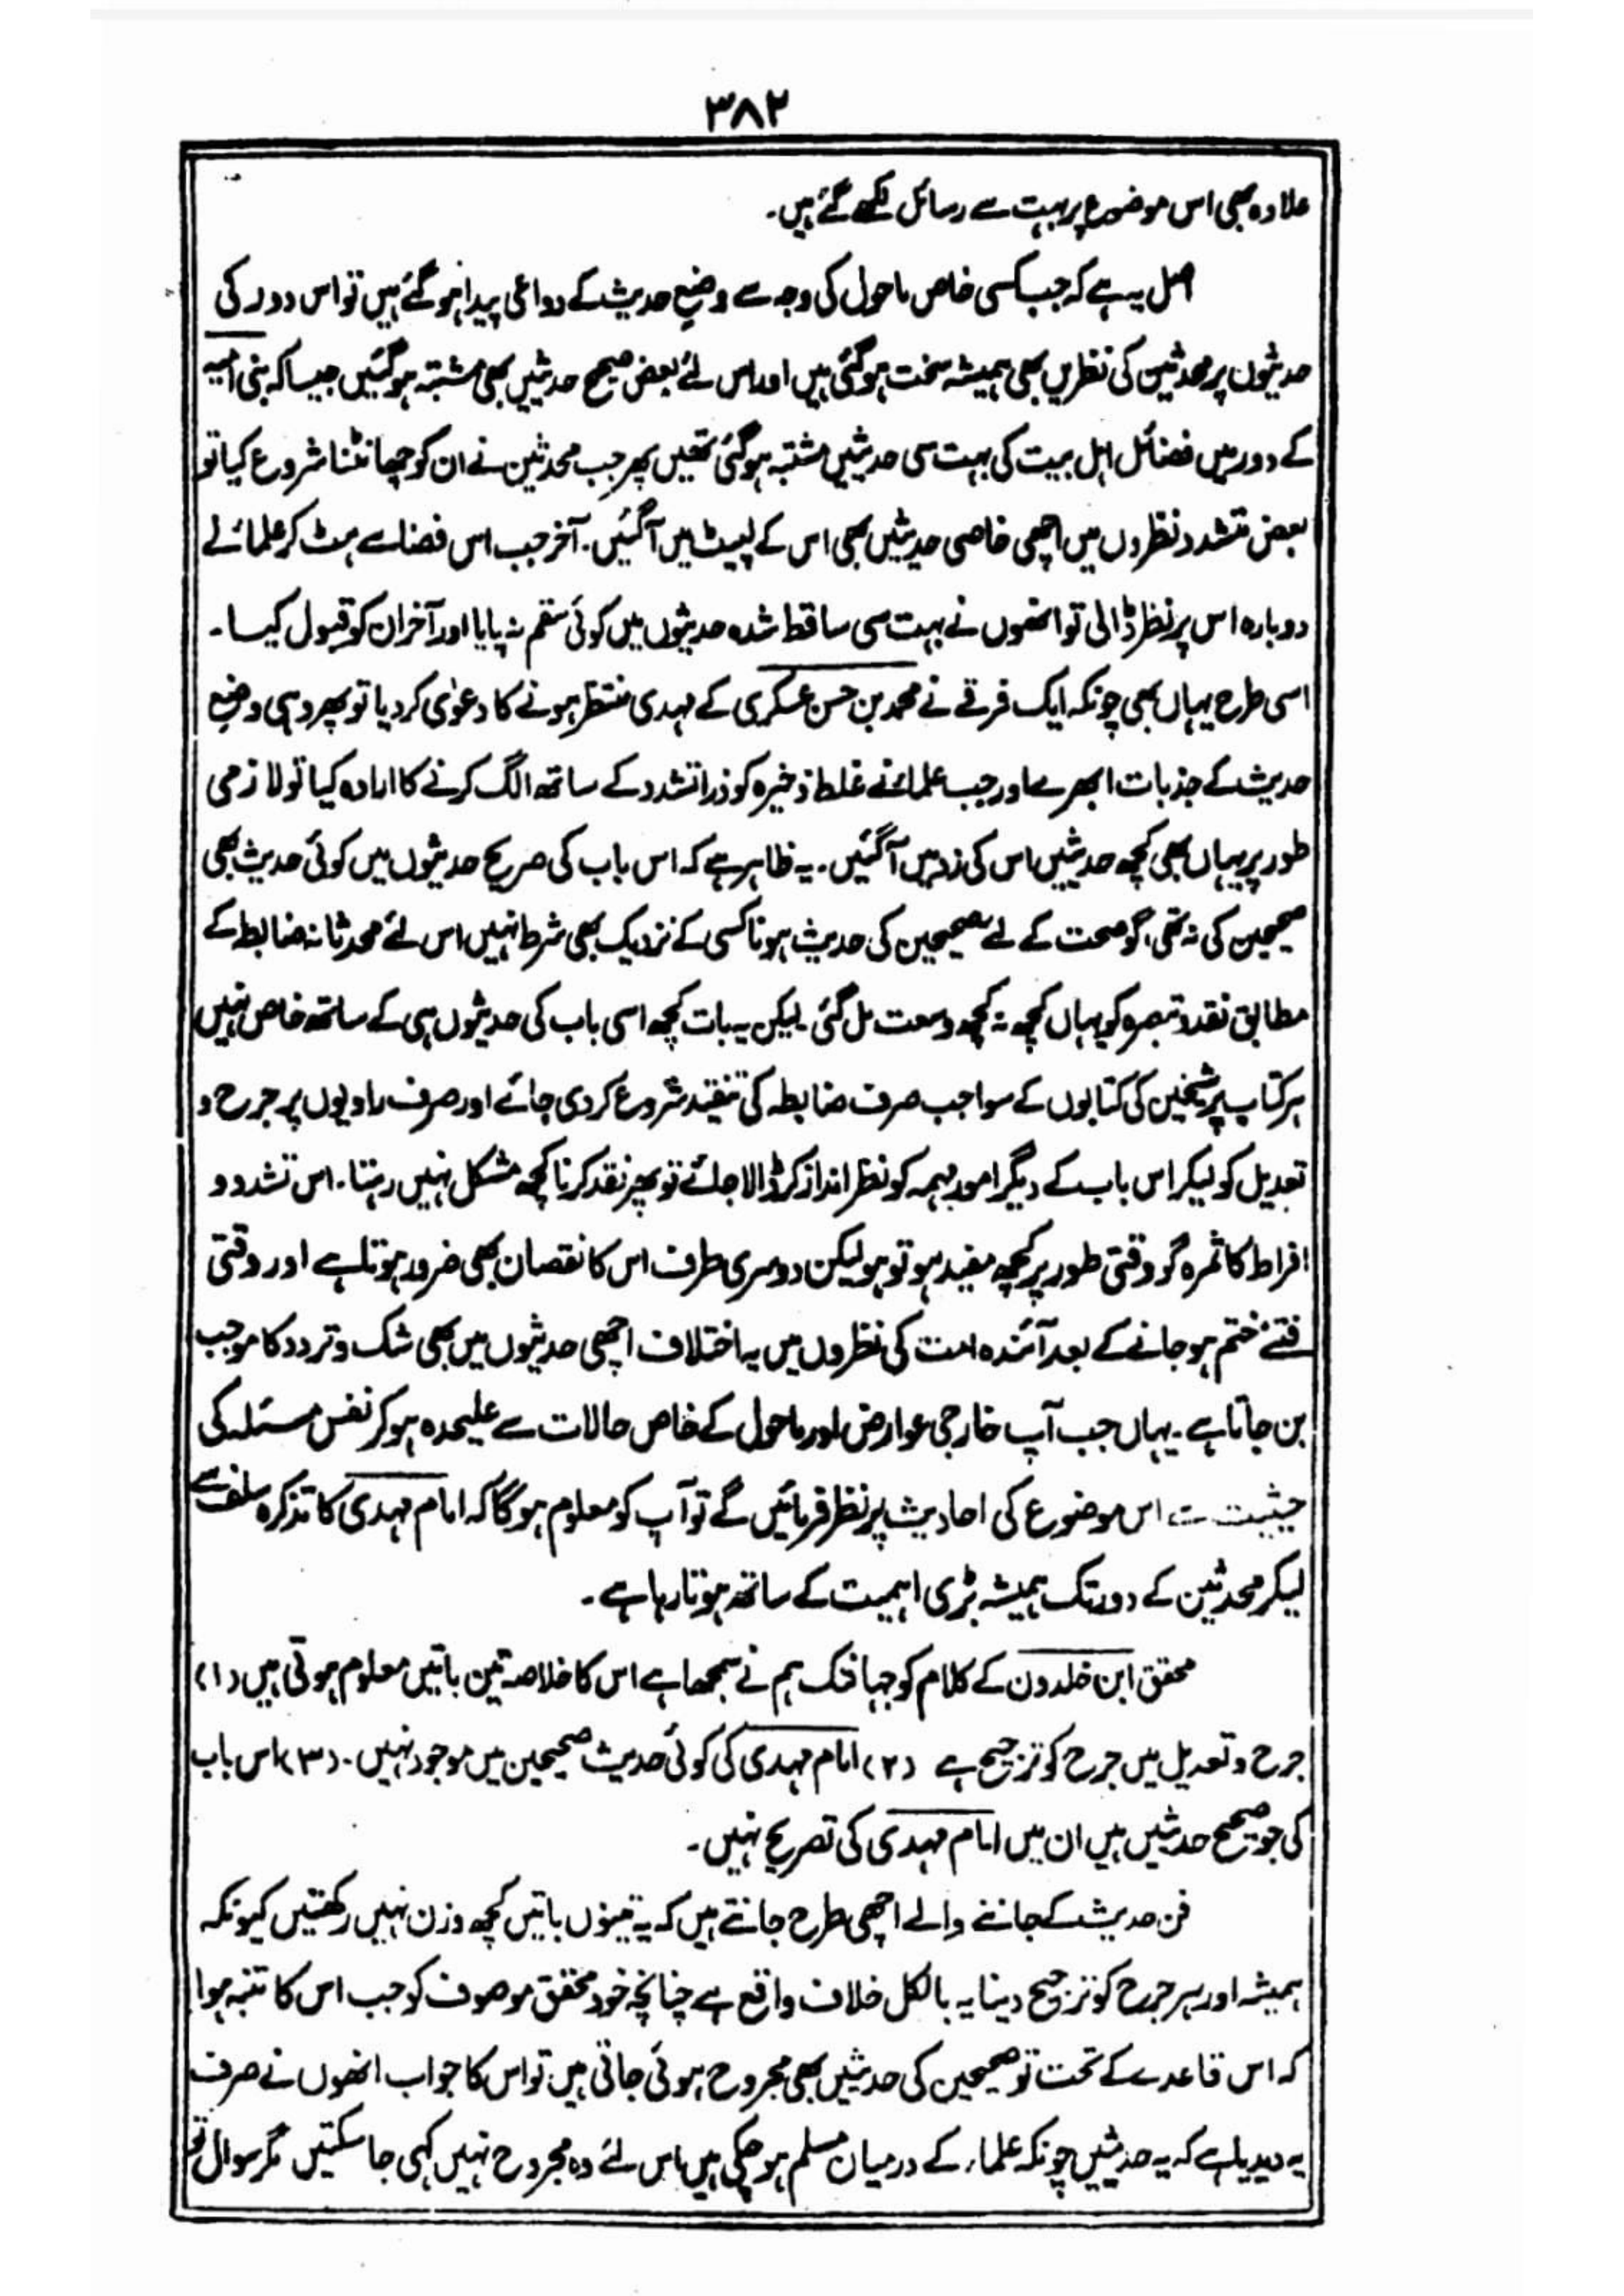 ۳۸۲
علاوہ بھی اس موضوع پر بہت سے رسائل لکھے گئے ہیں۔
اصل یہ ہے کہ جب کسی خاص ماحول کی وجہ سے وضعِ حدیث کے دواعی پیدا ہو گئے ہیں تو اس دور کی
حدیثوں پر محدثین کی نظریں بھی ہمیشہ سخت ہو گئی ہیں اور اس لئے بعض صحیح حدیثیں بھی مشتبہ ہو گئیں جیسا کہ بنی امیہ
کے دور میں فضائل اہل بیت کی بہت سی حدیثیں مشتبہ ہو گئی تھیں پھر جب محدثین نے ان کو چھانٹنا شروع کیا تو
بعض متشدد نظروں میں اچھی خاصی حدیثیں بھی اس کے لپیٹ میں آ گئیں۔ آخر جب اس فضا سے ہٹ کر علماء نے
دوبارہ اس پر نظر ڈالی تو انھوں نے بہت سی ساقط شدہ حدیثوں میں کوئی سقم نہ پایا اور آخر ان کو قبول کیا۔
اسی طرح یہاں بھی چونکہ ایک فرقے نے محمد بن حسن عسکری کے مہدی منتظر ہونے کا دعوٰی کر دیا تو پھر وہی وضعِ
حدیث کے جذبات ابھرے اور جب علماء نے غلط ذخیرہ کو ذرا تشدد کے ساتھ الگ کرنے کا ارادہ کیا تو لازمی
طور پر یہاں بھی کچھ حدیثیں اس کی زد میں آ گئیں۔ یہ ظاہر ہے کہ اس باب کی صریح حدیثوں میں کوئی حدیث بھی
صحیحین کی نہ تھی، گو صحت کے لئے صحیحین کی حدیث ہونا کسی کے نزدیک بھی شرط نہیں اس لئے محدثانہ ضابطہ کے
مطابق نقد و تبصرہ کو یہاں کچھ نہ کچھ وسعت مل گئی۔ لیکن یہ بات کچھ اسی باب کی حدیثوں ہی کے ساتھ خاص نہیں
ہر کتاب پر شیخین کی کتابوں کے سوا جب صرف ضابطہ کی تنقید شروع کر دی جائے اور صرف راویوں پر جرح و
تعدیل کو لیکر اس باب کے دیگر امور مہمہ کو نظر انداز کر ڈالا جائے تو پھر نقد کرنا کچھ مشکل نہیں رہتا۔ اس تشدد و
افراط کا ثمرہ گو وقتی طور پر کچھ مفید ہو تو ہو لیکن دوسری طرف اس کا نقصان بھی ضرور ہوتا ہے اور وقتی
فتنے ختم ہو جانے کے بعد آئندہ امت کی نظروں میں یہ اختلاف اچھی حدیثوں میں بھی شک و تردد کا موجب
بن جاتا ہے۔ یہاں جب آپ خارجی عوارض اور ماحول کے خاص حالات سے علیحدہ ہو کر نفس مسئلہ کی
حیثیت سے اس موضوع کی احادیث پر نظر فرمائیں گے تو آپ کو معلوم ہو گا کہ امام مہدی کا تذکرہ سلف سے
لیکر محدثین کے دور تک ہمیشہ بڑی اہمیت کے ساتھ ہوتا رہا ہے۔
محقق ابن خلدون کے کلام کو جہانتک ہم نے سمجھا ہے اس کا خلاصہ تین باتیں معلوم ہوتی ہیں (۱)
جرح و تعدیل میں جرح کو ترجیح ہے (۲) امام مہدی کی کوئی حدیث صحیحین میں موجود نہیں۔ (۳) اس باب
کی جو صحیح حدیثیں ہیں ان میں امام مہدی کی تصریح نہیں۔
فن حدیث کے جاننے والے اچھی طرح جانتے ہیں کہ یہ تینوں باتیں کچھ وزن نہیں رکھتیں کیونکہ
ہمیشہ اور ہر جرح کو ترجیح دینا یہ بالکل خلاف واقع ہے چنانچہ خود محقق موصوف کو جب اس کا تنبہ ہوا
کہ اس قاعدے کے تحت تو صحیحین کی حدیثیں بھی مجروح ہوئی جاتی ہیں تو اس کا جواب انھوں نے صرف
یہ دیدیا ہے کہ یہ حدیثیں چونکہ علماء کے درمیان مسلم ہو چکی ہیں اس لئے وہ مجروح نہیں کہی جا سکتیں مگر سوال تو